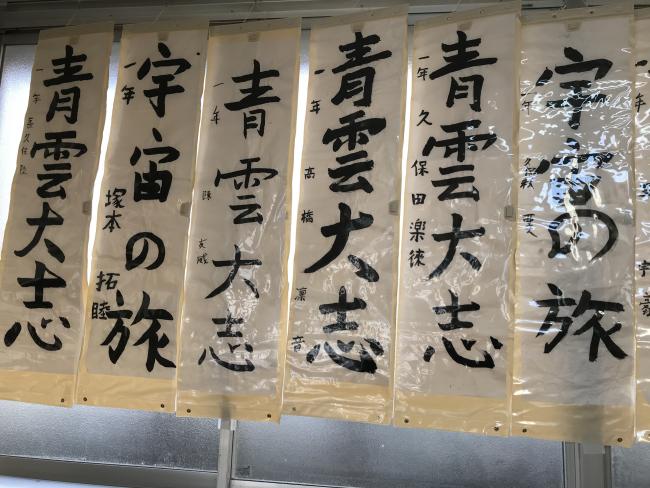 青雲大志
一年
宇宙の旅
一年 塚本 拓睦
青雲大志
一年
青雲大志
一年 高橋 凛音
青雲大志
一年 久保田楽徠
宇宙の旅
一年